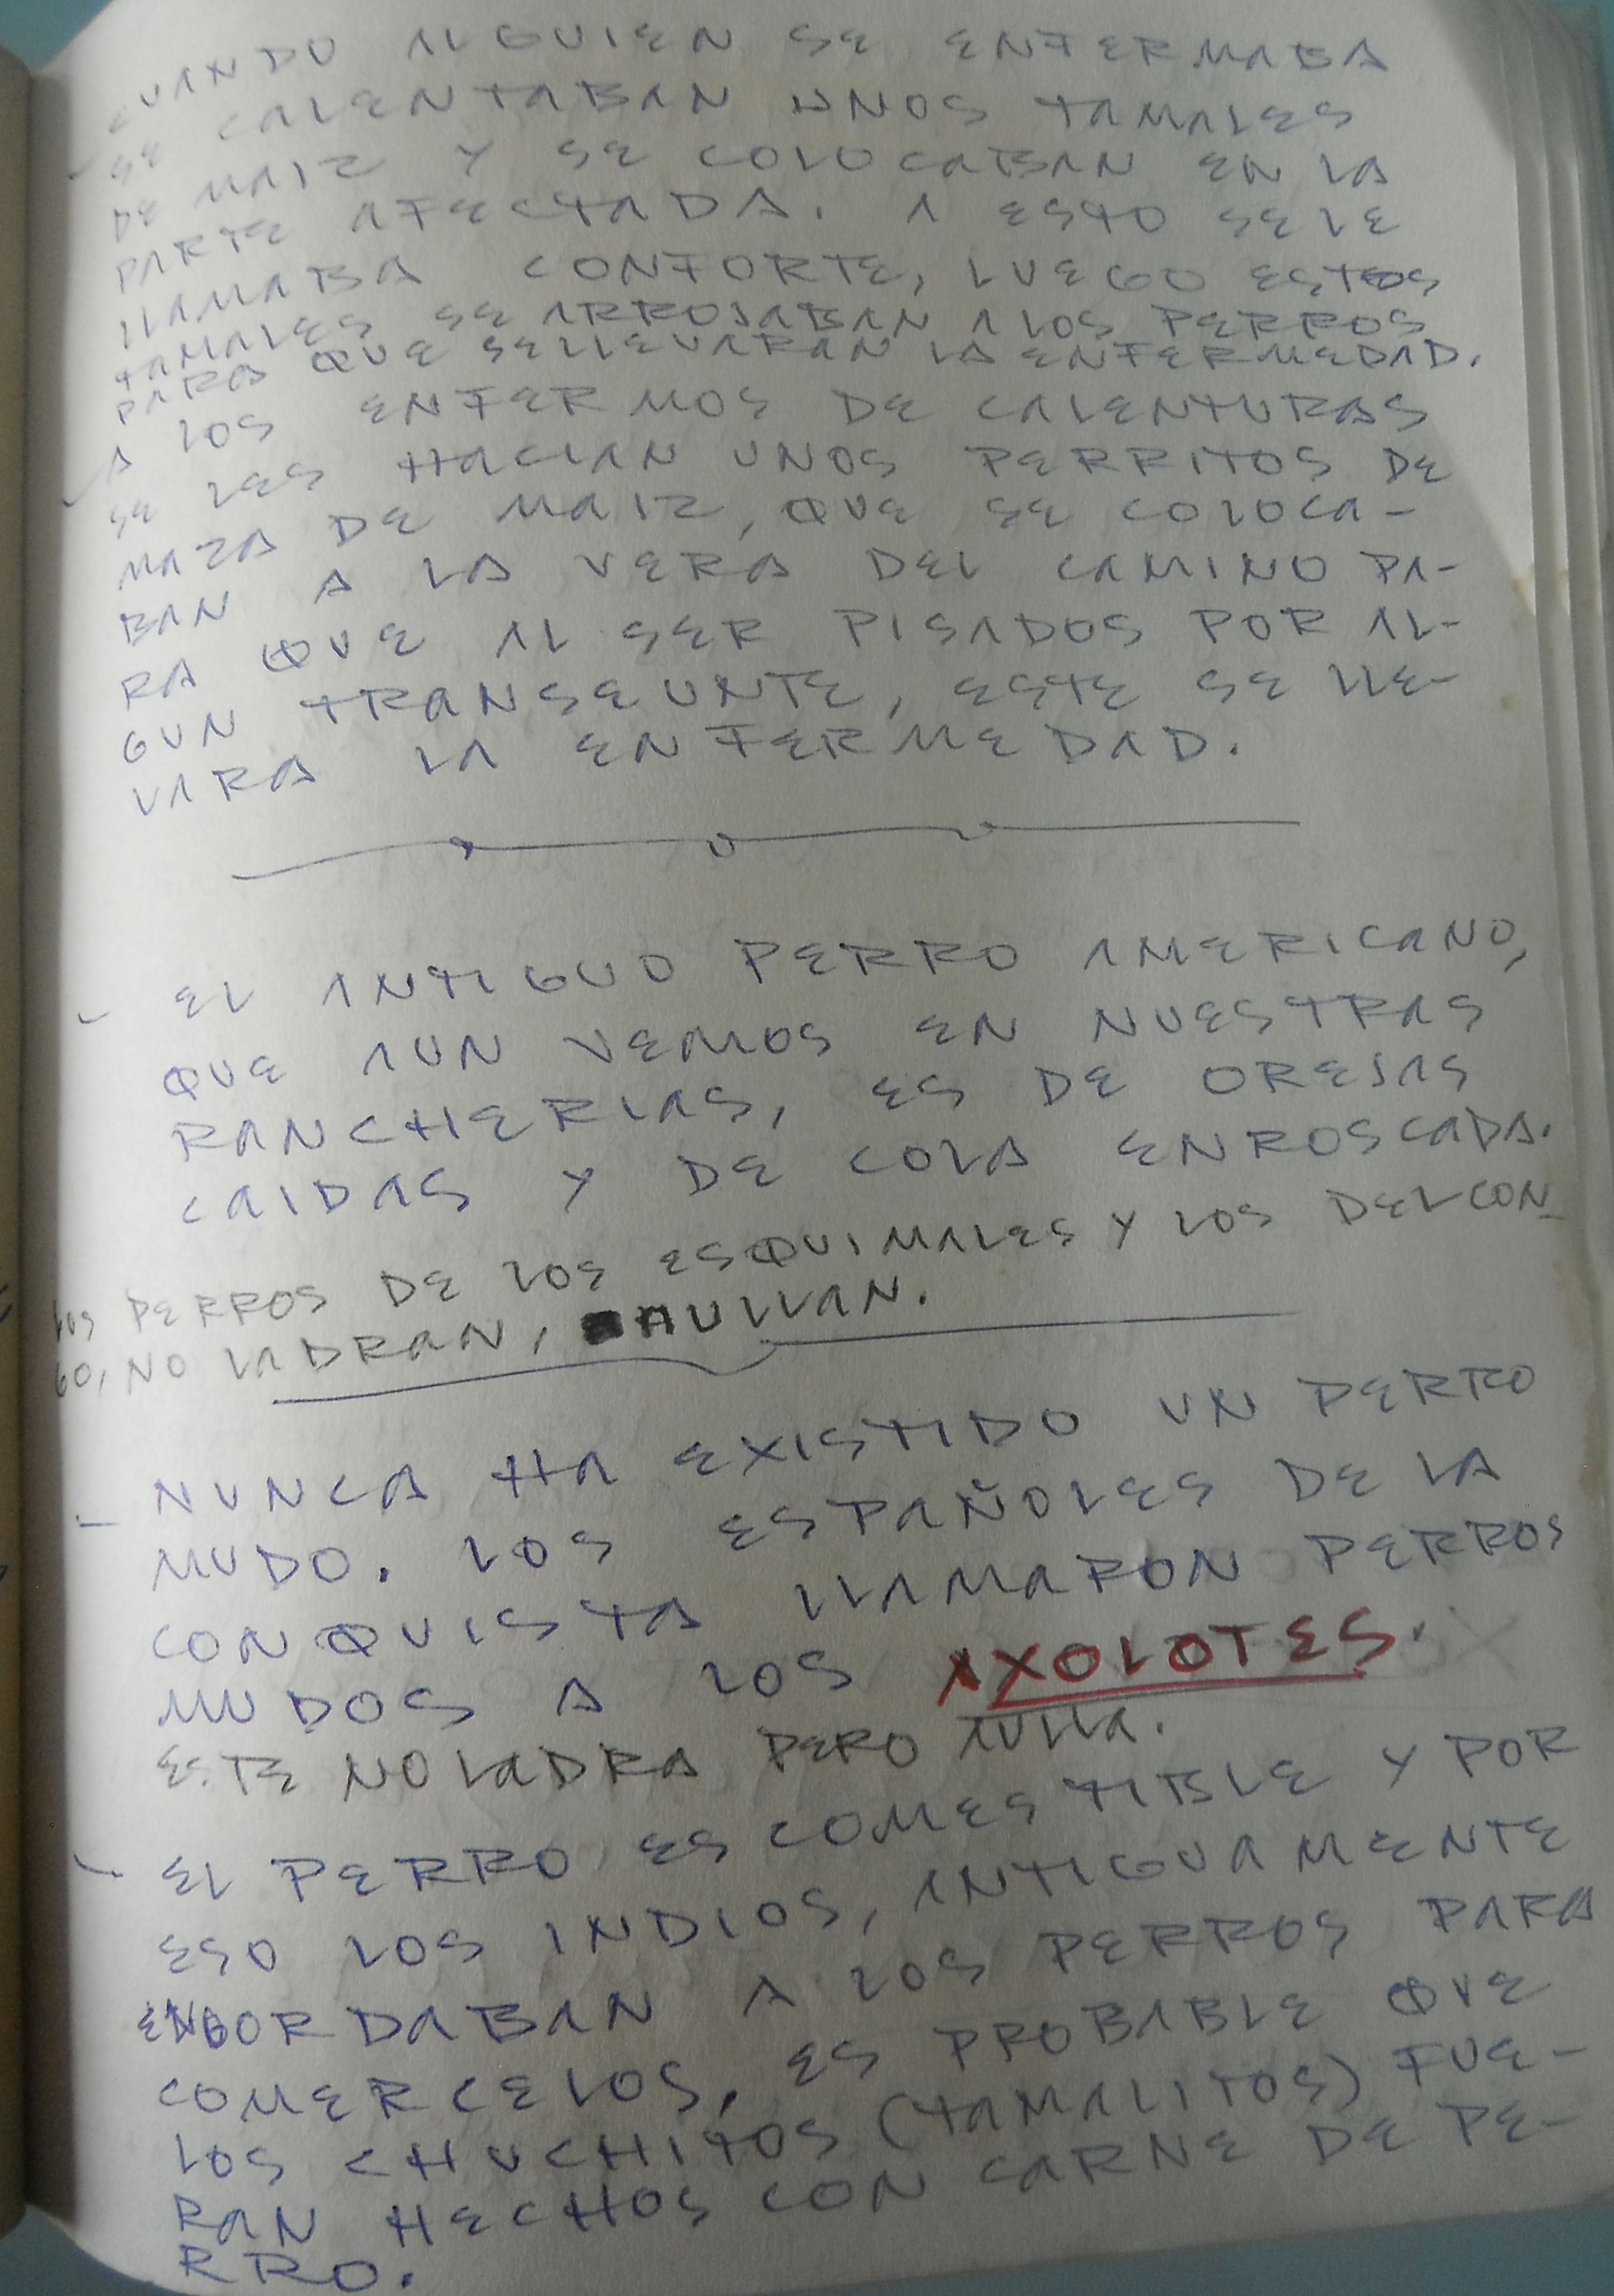 CUANDO ALGUIEN SE ENFERMABA
SE CALENTABAN UNOS TAMALES
DE MAIZ Y SE COLOCABAN EN LA
PARTE AFECTADA. A ESTO SE LE
LLAMABA CONFORTE, LUEGO ESTOS
TAMALES SE ARROJABAN A LOS PERROS
PARA QUE SE LLEVARAN LA ENFERMEDAD.
A LOS ENFERMOS DE CALENTURAS
SE LES HACIAN UNOS PERRITOS DE
MAZA DE MAIZ, QUE SE COLOCA-
BAN A LA VERA DEL CAMINO PA-
RA QUE AL SER PISADOS POR AL-
GUN TRANSEUNTE, ESTE SE LLE-
VARA LA ENFERMEDAD.
- EL ANTIGUO PERRO AMERICANO,
QUE AUN VEMOS EN NUESTRAS
RANCHERIAS, ES DE OREJAS
CAIDAS Y DE COLA ENROSCADA.
LOS PERROS DE LOS ESQUIMALES Y LOS DEL CON-
GO, NO LADRAN, AULLAN.
- NUNCA HA EXISTIDO UN PERRO
MUDO. LOS ESPAÑOLES DE LA
CONQUISTA LLAMARON PERROS
MUDOS A LOS AXOLOTES.
ESTE NO LADRA PERO AULLA.
- EL PERRO ES COMESTIBLE Y POR
ESO LOS INDIOS, ANTIGUAMENTE
ENGORDABAN A LOS PERROS PARA
COMERCELOS. ES PROBABLE QUE
LOS CHUCHITOS (TAMALITOS) FUE-
RAN HECHOS CON CARNE DE PE-
RRO.